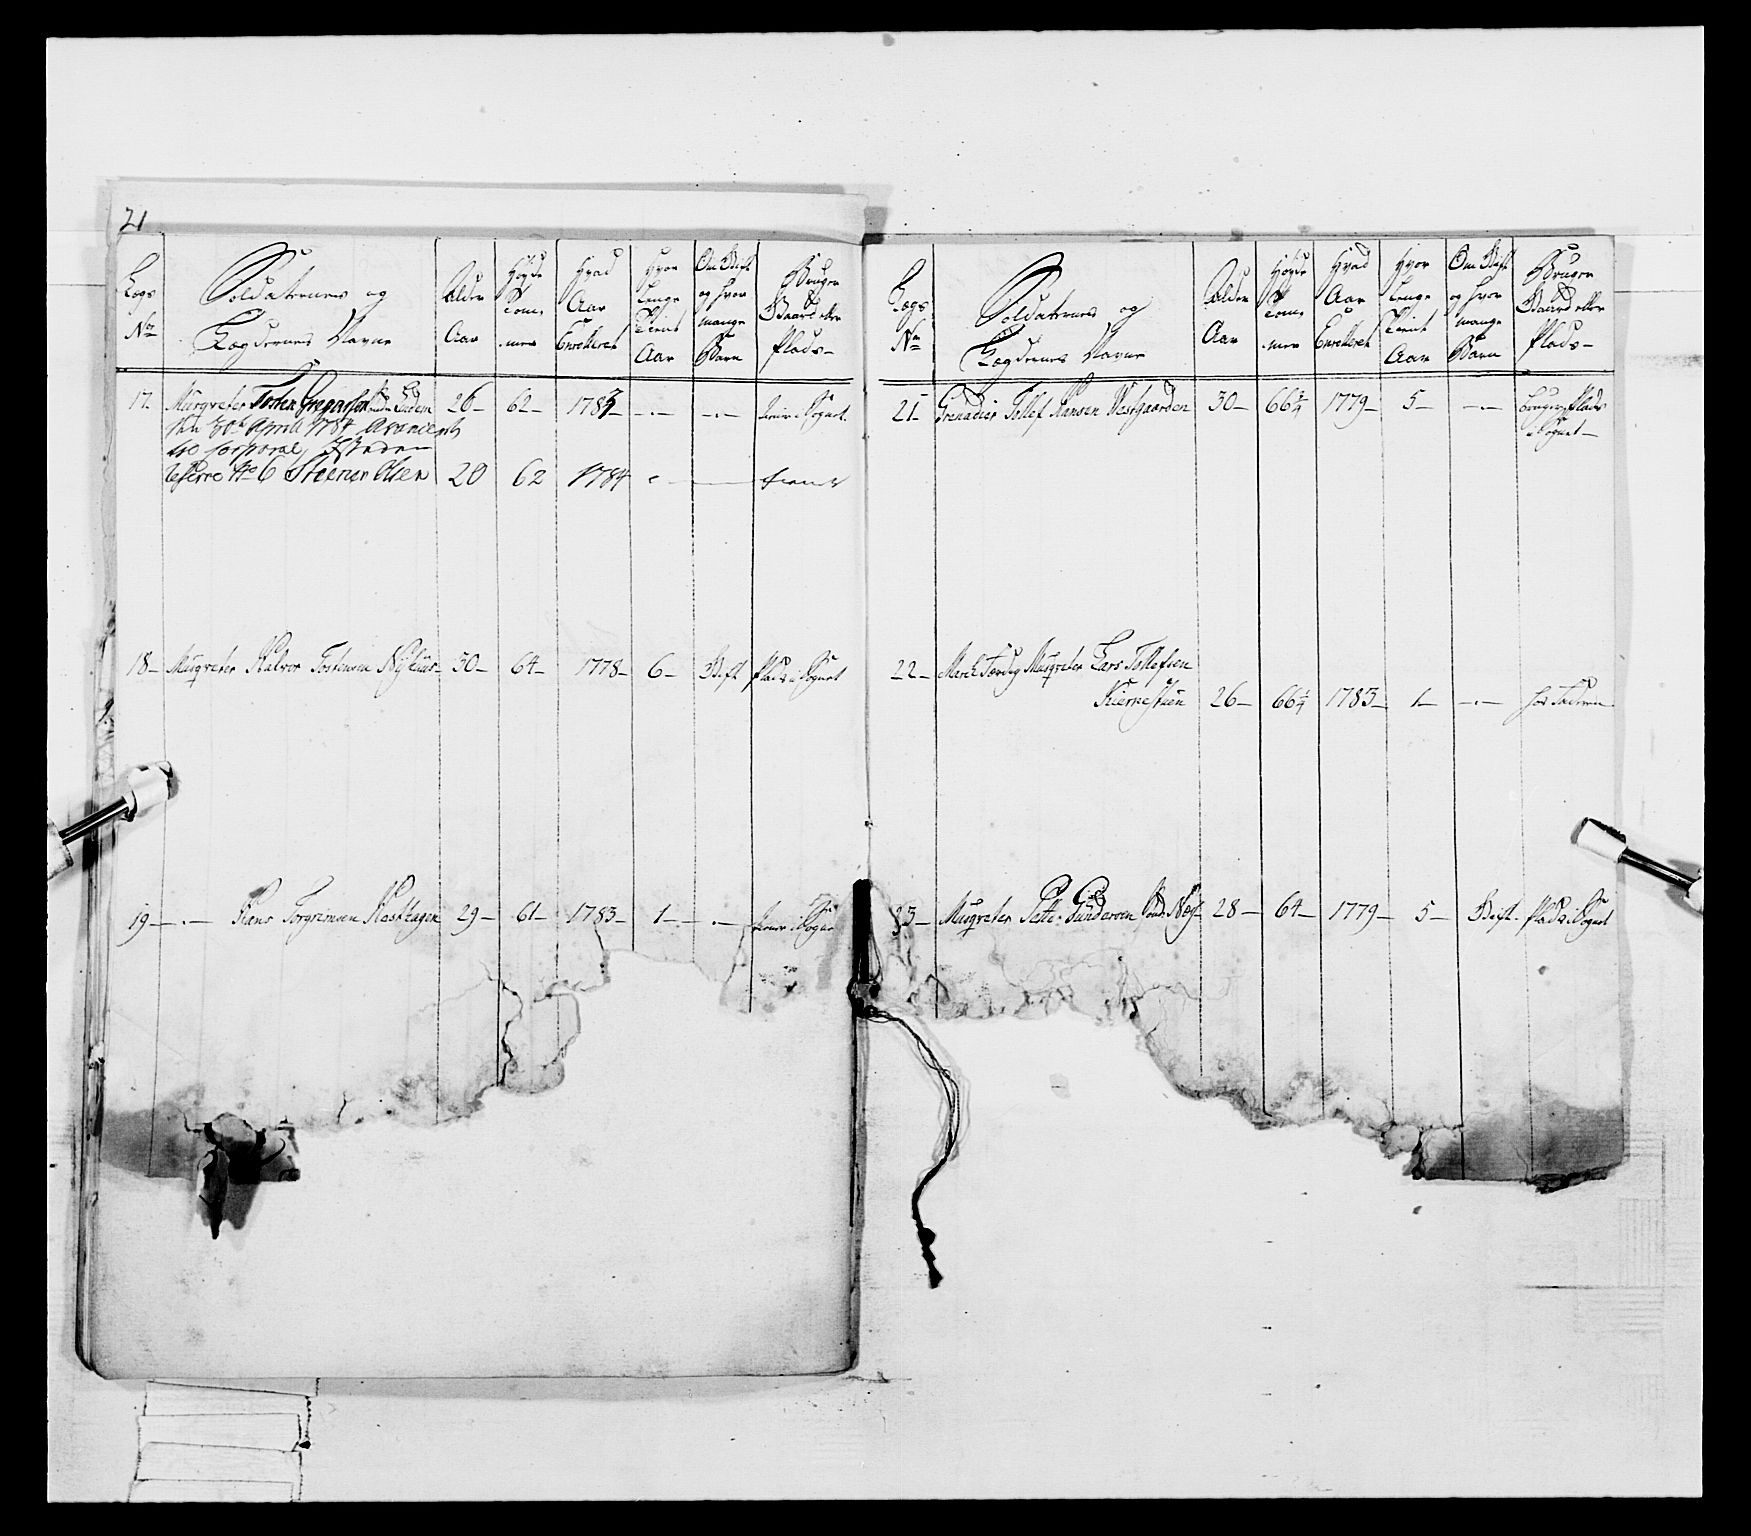 21
Legs No
Soldaternes og Legdernes Navne
Alder Aar
Høyde Tommer
Hvad Aar Enrolleret
Hvor Lenge Tient Aar
Om Gift og hvor mange Barn
Bruger Gaard eller Plads
17. Musqveter Torsten Gregersen 26 62 1783 -.- -.- Sognet
den 30te April 1784 Avanceret
til Corporal, I steden
reserve No 6 Steener Olsen 20 62 1784
18 Musqveter Halvor Torstensen 30 64 1778 6 Gift Plads i Sognet
19 -.- Hans Torgrimsen Hesthagen 29 61 1783 1 -.- i Sognet
Legs No
Soldaternes og Legdernes Navne
Alder Aar
Høyde Tommer
Hvad Aar Enrolleret
Hvor Lenge Tient Aar
Om Gift og hvor mange Barn
Bruger Gaard eller Plads
21 Grenadier Tollef Hansen Westgaarden 30 66 3/4 1779 5 -.- Bruger Plads
i Sognet
22 March Færdig Musqveter Lars Tollefsen
Kiernestuen 26 66 1/4 1783 1 -.- hos Faderen
23 Musqveter Peter Gundersen 28 64 1779 5 Gift Plads i Sognet